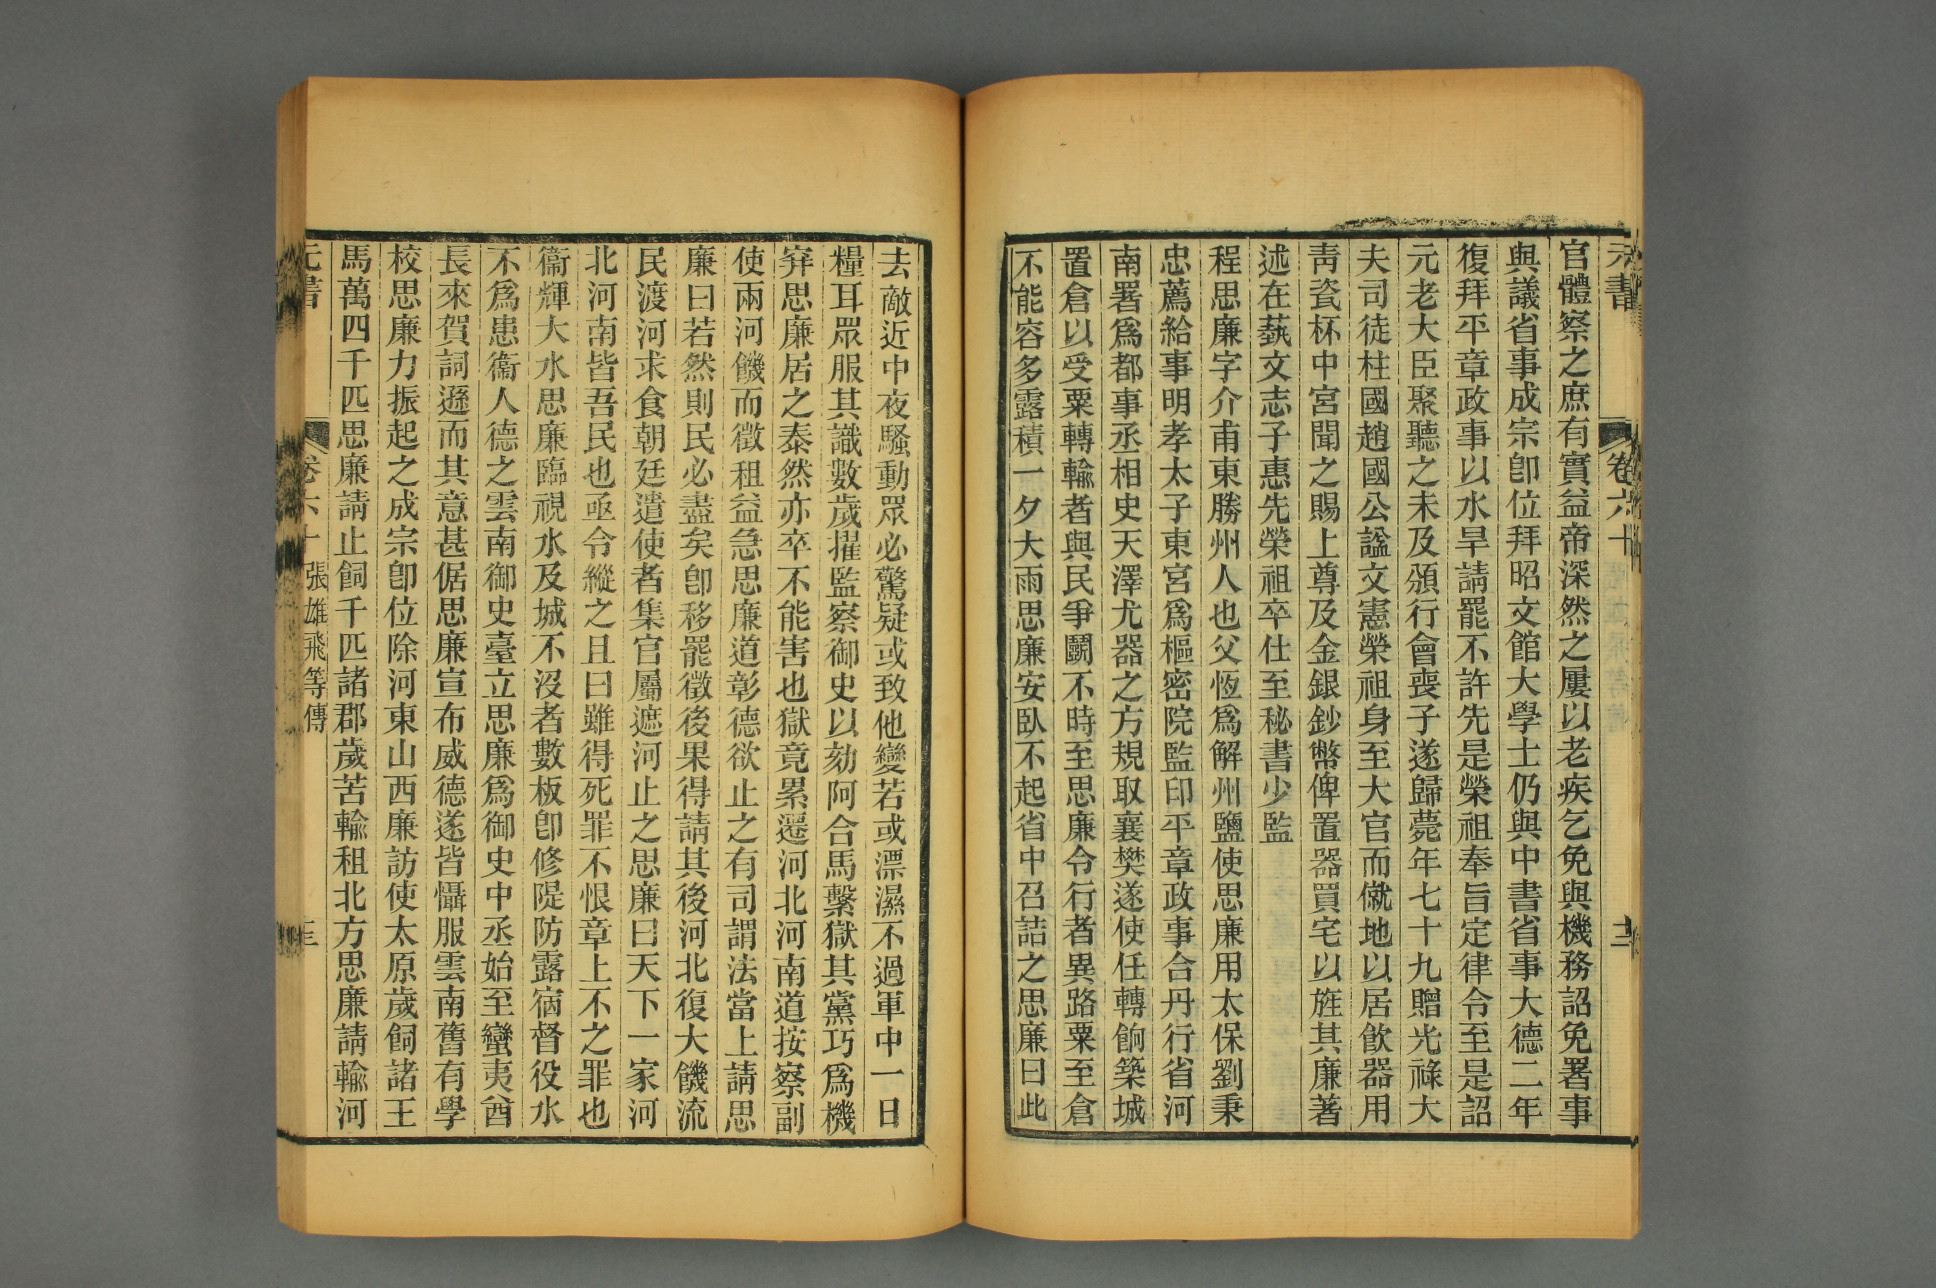 元書 卷六十 十二
官體察之庶有實益帝深然之屢以老疾乞免與機務詔免署事
與議省事成宗卽位拜昭文館大學士仍與中書省事大德二年
復拜平章政事以水旱請罷不許先是榮祖奉旨定律令至是詔
元老大臣聚聽之未及頒行會喪子遂歸薨年七十九贈光祿大
夫司徒柱國趙國公諡文憲榮祖身至大官而僦地以居飮器用
靑瓷杯中宮聞之賜上尊及金銀鈔幣俾置器買宅以旌其廉著
述在蓺文志子惠先榮祖卒仕至秘書少監
程思廉字介甫東勝州人也父恆爲解州鹽使思廉用太保劉秉
忠薦給事明孝太子東宮爲樞密院監印平章政事合丹行省河
南署爲都事丞相史天澤尤器之方規取襄樊遂使任轉餉築城
置倉以受粟轉輸者與民爭鬭不時至思廉令行者異路粟至倉
不能容多露積一夕大雨思廉安臥不起省中召詰之思廉曰此
去敵近中夜騷動眾必驚疑或致他變若或漂濕不過軍中一日
糧耳眾服其識數歲擢監察御史以劾阿合馬繫獄其黨巧爲機
穽思廉居之泰然亦卒不能害也獄竟累遷河北河南道按察副
使兩河饑而徵租益急思廉道彰德欲止之有司謂法當上請思
廉曰若然則民必盡矣卽移罷徵後果得請其後河北復大饑流
民渡河求食朝廷遣使者集官屬遮河止之思廉曰天下一家河
北河南皆吾民也亟令縱之且曰雖得死罪不恨章上不之罪也
衞輝大水思廉臨視水及城不沒者數板卽修隄防露宿督役水
不爲患衞人德之雲南御史臺立思廉爲御史中丞始至蠻夷酋
長來賀詞遜而其意甚倨思廉宣布威德遂皆懾服雲南舊有學
校思廉力振起之成宗卽位除河東山西廉訪使太原歲飼諸王
馬萬四千匹思廉請止飼千匹諸郡歲苦輸租北方思廉請輸河
元書 卷六十 張雄飛等傳